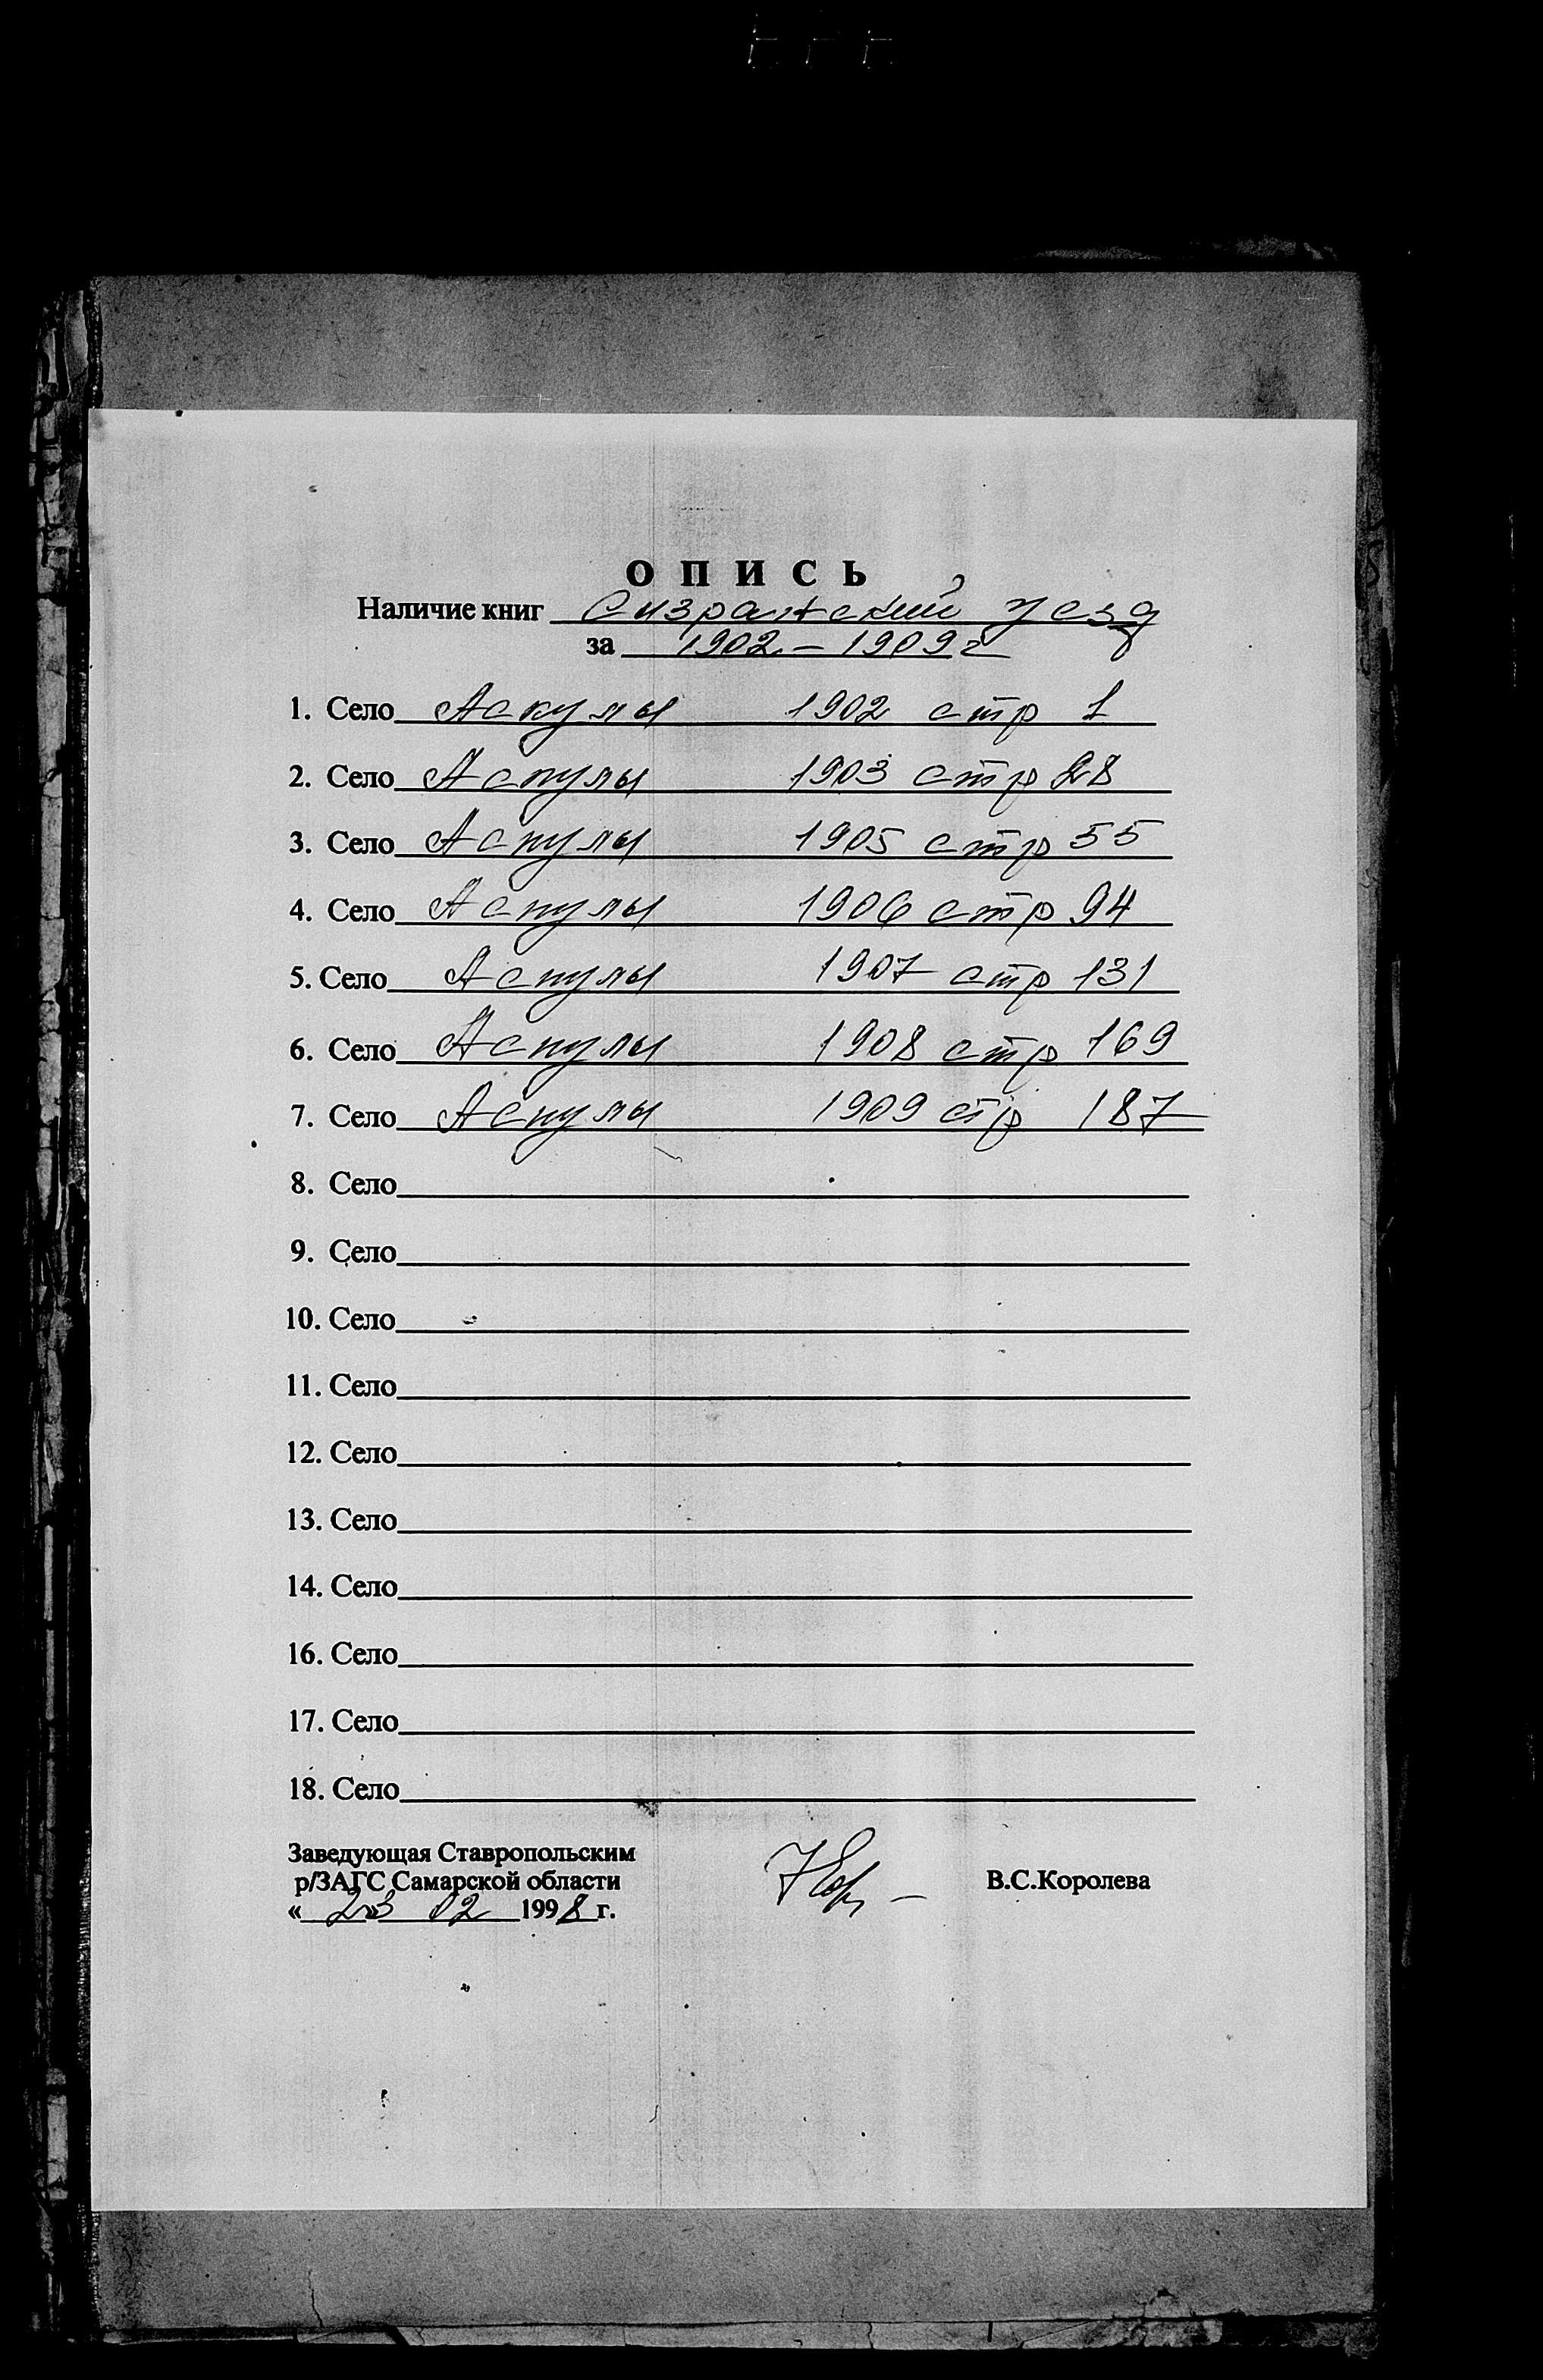 О П И С Ь
Наличие книг Сызранский уезд
за 1902 – 1909 г
1. Село Аскулы 1902 стр 1
2. Село Аскулы 1903 стр 28
3. Село Аскулы 1905 стр 55
4. Село Аскулы 1906 стр 94
5. Село Аскулы 1907 стр 131
6. Село Аскулы 1908 стр 169
7. Село Аскулы 1909 стр 187
8. Село
9. Село
10. Село
11. Село
12. Село
13. Село
14. Село
16. Село
17. Село
18. Село
Заведующая Ставропольским
р/ЗАГС Самарской области В.С.Королева
« 23 » 02 1998 г.